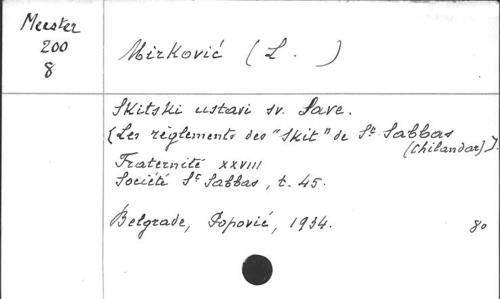 Meester
200
8
Mirković (L. )
Skitski ustavi sv. Save.
(Les règlements des "Skit" de St Sabbas
(Chilandar)).
Fraternité XXVIII
Société St Sabbas, t. 45.
Belgrade, Popović, 1934.
8o